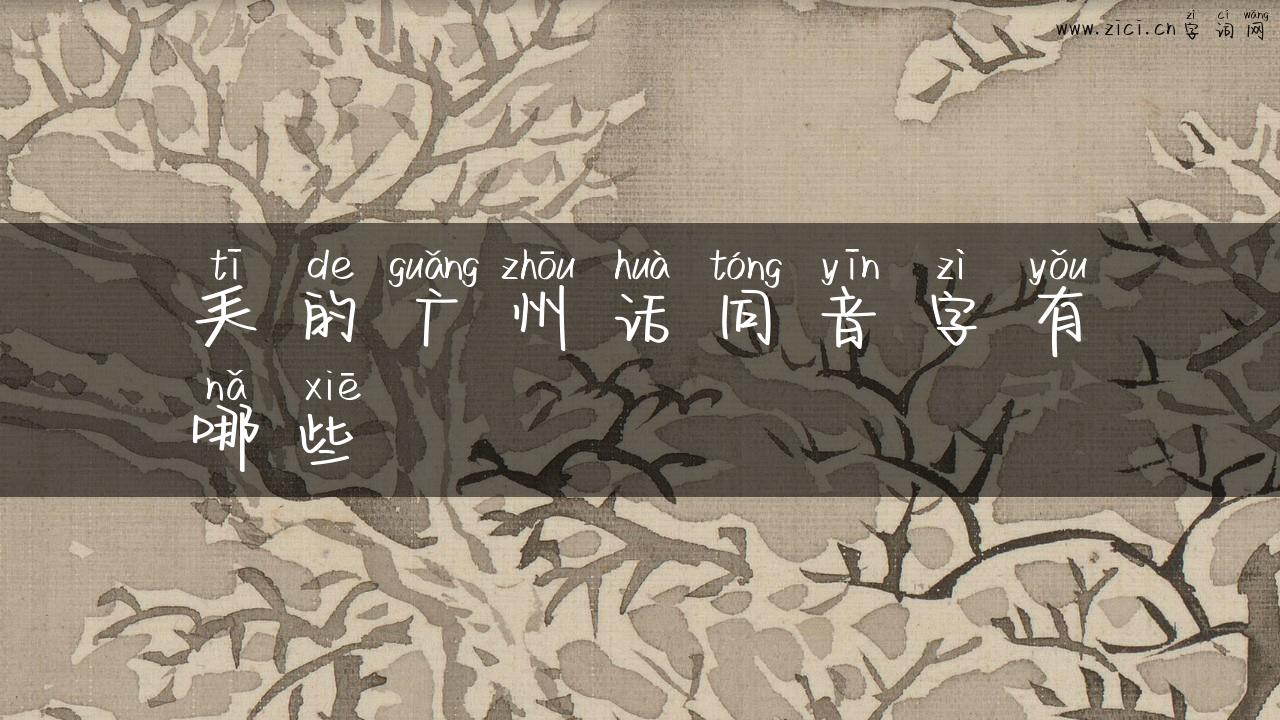 zì cí wǎng
www.zici.cn 字 词 网
tī de guǎng zhōu huà tóng yīn zì yǒu
的 广 州 话 同 音 字 有
nǎ xiē
哪 些